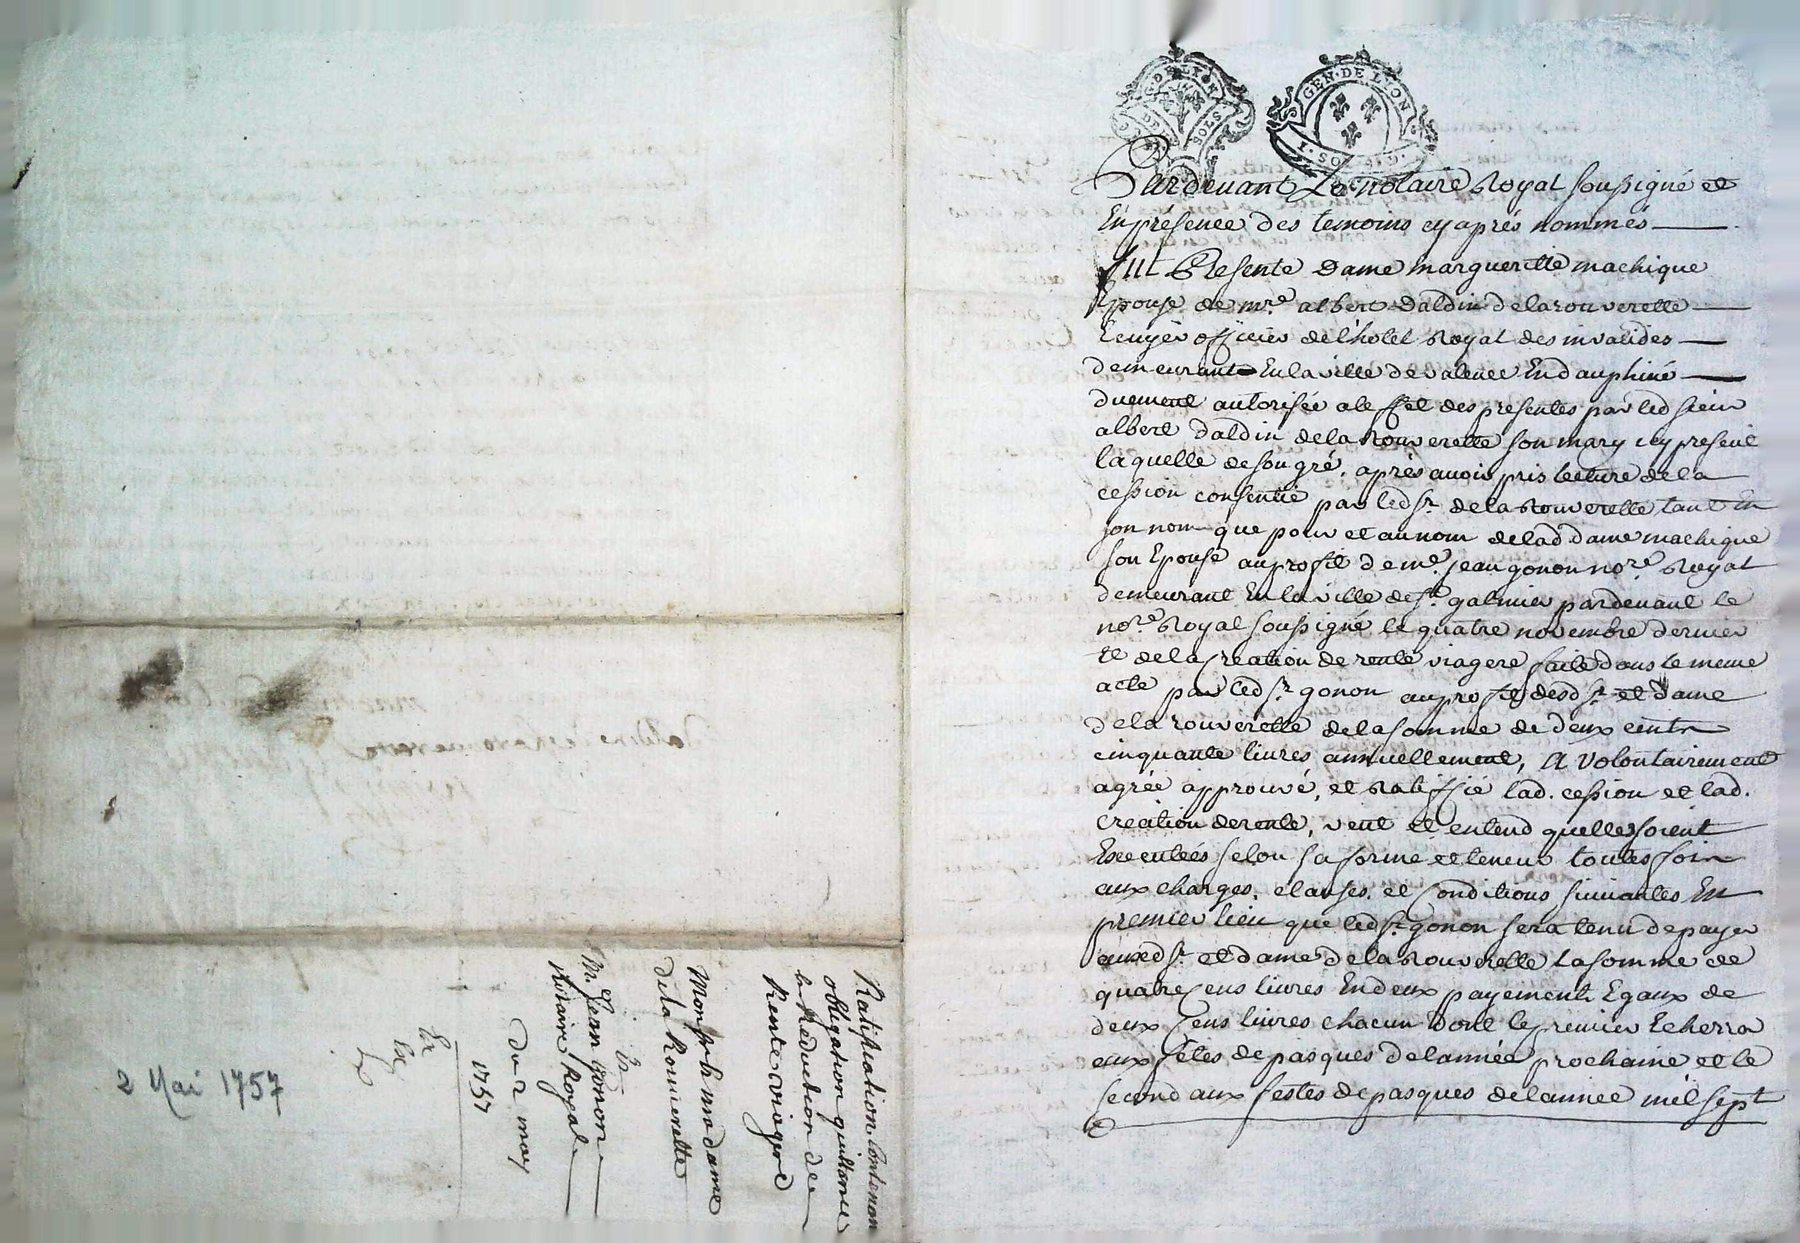 G. DE LYON
DEUX SOLS
GEN. DE LYON
I. SOL
Pardevant Le notaire Royal soussigné et
En présence des temoins cy après nommés
fut Presente Dame margueritte machique
Epouse de mre. albert daldin delarouverette
Ecuyer officier del'hotel Royal des invalides
demeurant En la ville de valence En dauphiné
duement autorisée a leffet des presentes par led sieur
albert daldin dela Rouverette son mary icy present
laquelle de son gré, après avoir pris lecture de la
cession consentie par led sr. dela Rouverette tant En
son nom que pour et au nom de lad dame machique
son Epouse au profit de me. jean gonon nore. Royal
demeurant En la ville de st. galmier pardevant le
nore. Royal soussigné le quatre novembre dernier
et de la Creation de rente viagere faite dans le meme
acte par led sr. gonon au profit desd sr. et dame
dela rouverette de la somme de deux cents
cinquante livres annuellement, A volontairement
agrée approuvé, et Ratiffié lad. cession et lad.
creation de rente, veut et entend quelles soient
Executées selon sa forme et teneur toutes fois
aux charges, clauses, et Conditions suivantes En
premier lieu que led sr. gonon sera tenu de payer
auxd sr. et dame dela Rouverette la somme de
quatre Cens livres En deux payements Egaux de
deux Cens livres chacun dont le premier Echerra
aux fêtes de pasques de l'année prochaine et le
second aux festes de pasques de l'année mil sept
Ratiffication Contenon
obligation quittance
la Reduction de
Rente viagere
Monsr. & madame
De la Rouverette
Mr. Jean Gonon
Notaire Royal
Du 2 may
1757
2 Mai 1757